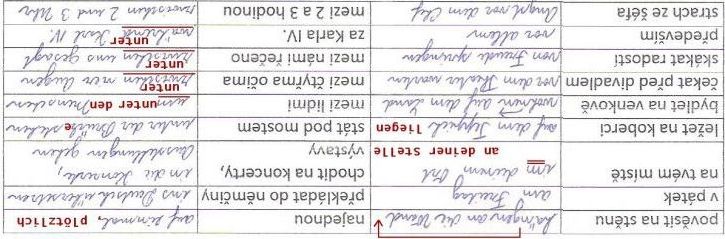 pověsit na stěnu hängen an die Wand najednou auf einmal, plötzlich
v pátek am Freitag překládat do němčiny ins Deutsch übersetzen
na tvém místě um deinem Ort chodit na koncerty, in die Konzerte,
an deiner Stelle výstavy Ausstellungen gehen
ležet na koberci auf dem Teppich liegen stát pod mostem unter der Brücke stehen
bydlet na venkově wohnen auf dem Land mezi lidmi um unter den Menschen
čekat před divadlem vor dem Theater warten mezi čtyřma očima zwischen vier Augen
unter
skákat radostí von Freude springen mezi námi řečeno zwischen uns gesagt
unter
především vor allem za Karla IV. während Karl IV.
unter
strach ze šéfa Angst vor dem Chef mezi 2 a 3 hodinou zwischen 2 und 3 Uhr